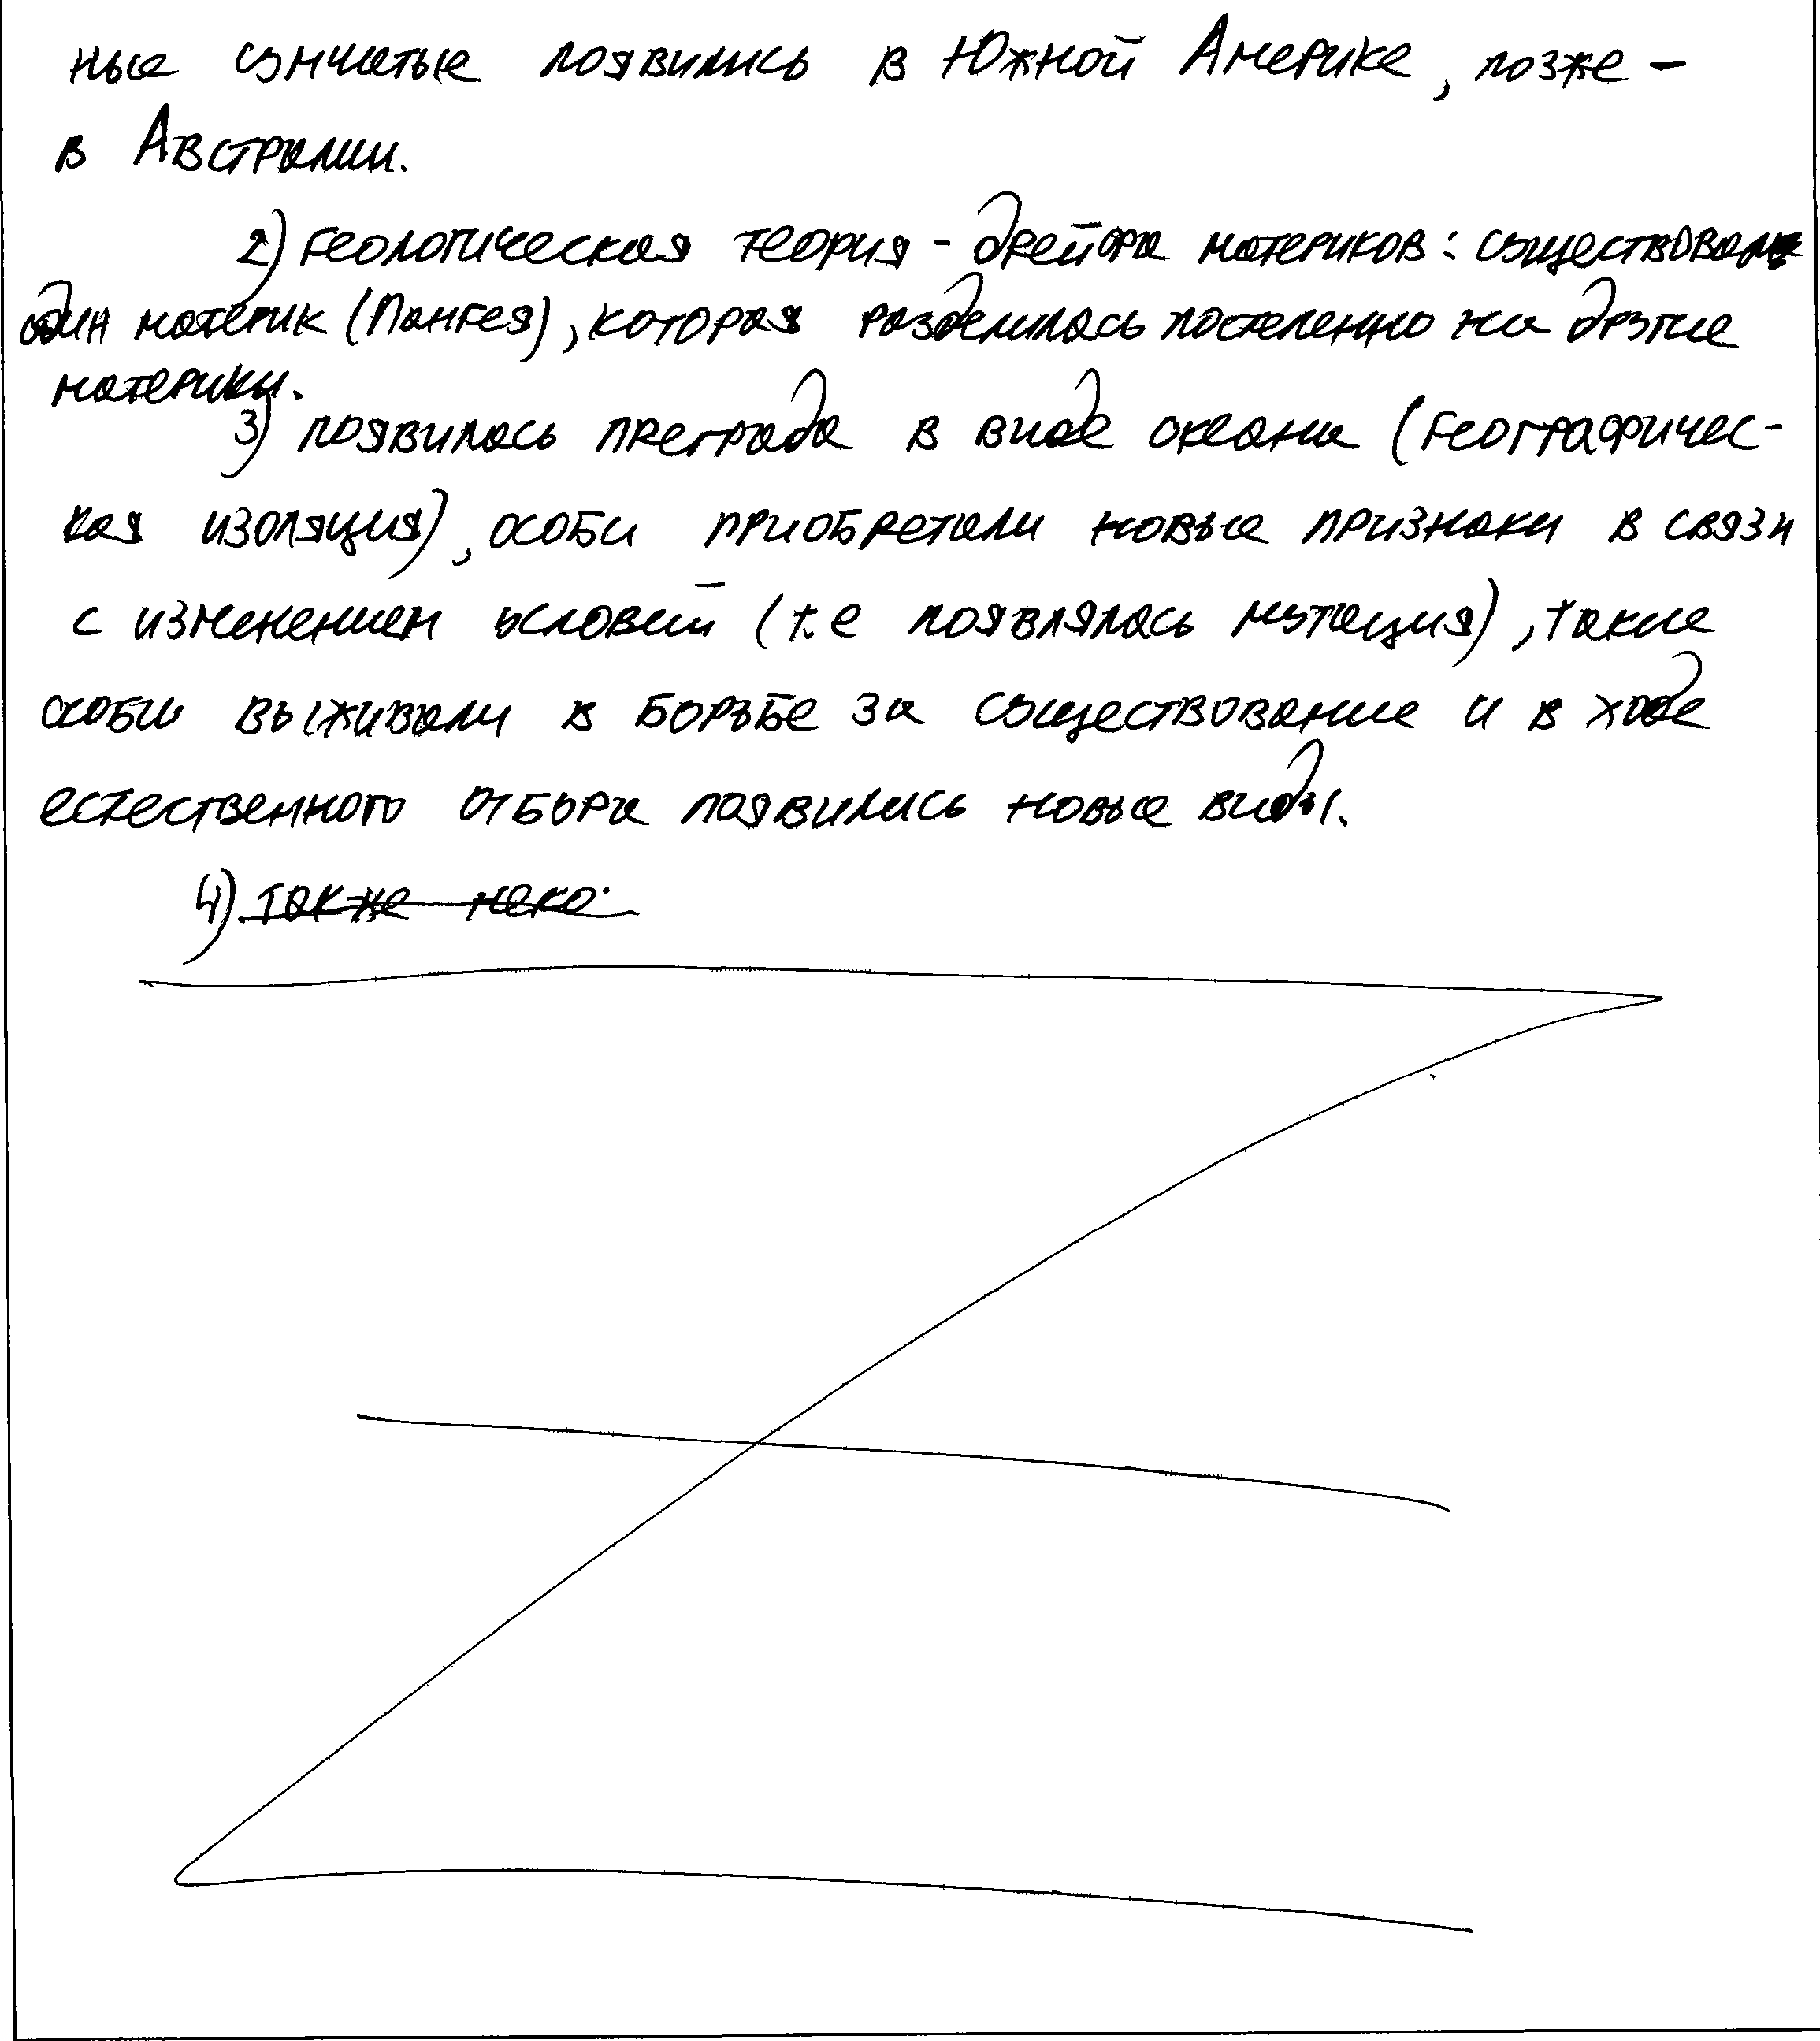 ные сумчатые появились в Южной Америке, позже -
в Австралии.
2) геологическая теория - дрейфа материков: существовал
один материк (Пангея), которая разделилась постепенно на другие
материки.
3) появилась преграда в виде океана (географичес-
кая изоляция), особи приобретали новые признаки в связи
с изменением условий (т.е появлялась мутация), такие
особи выживали в борьбе за существование и в ходе
естественного отбора появились новые виды.
4) также неко